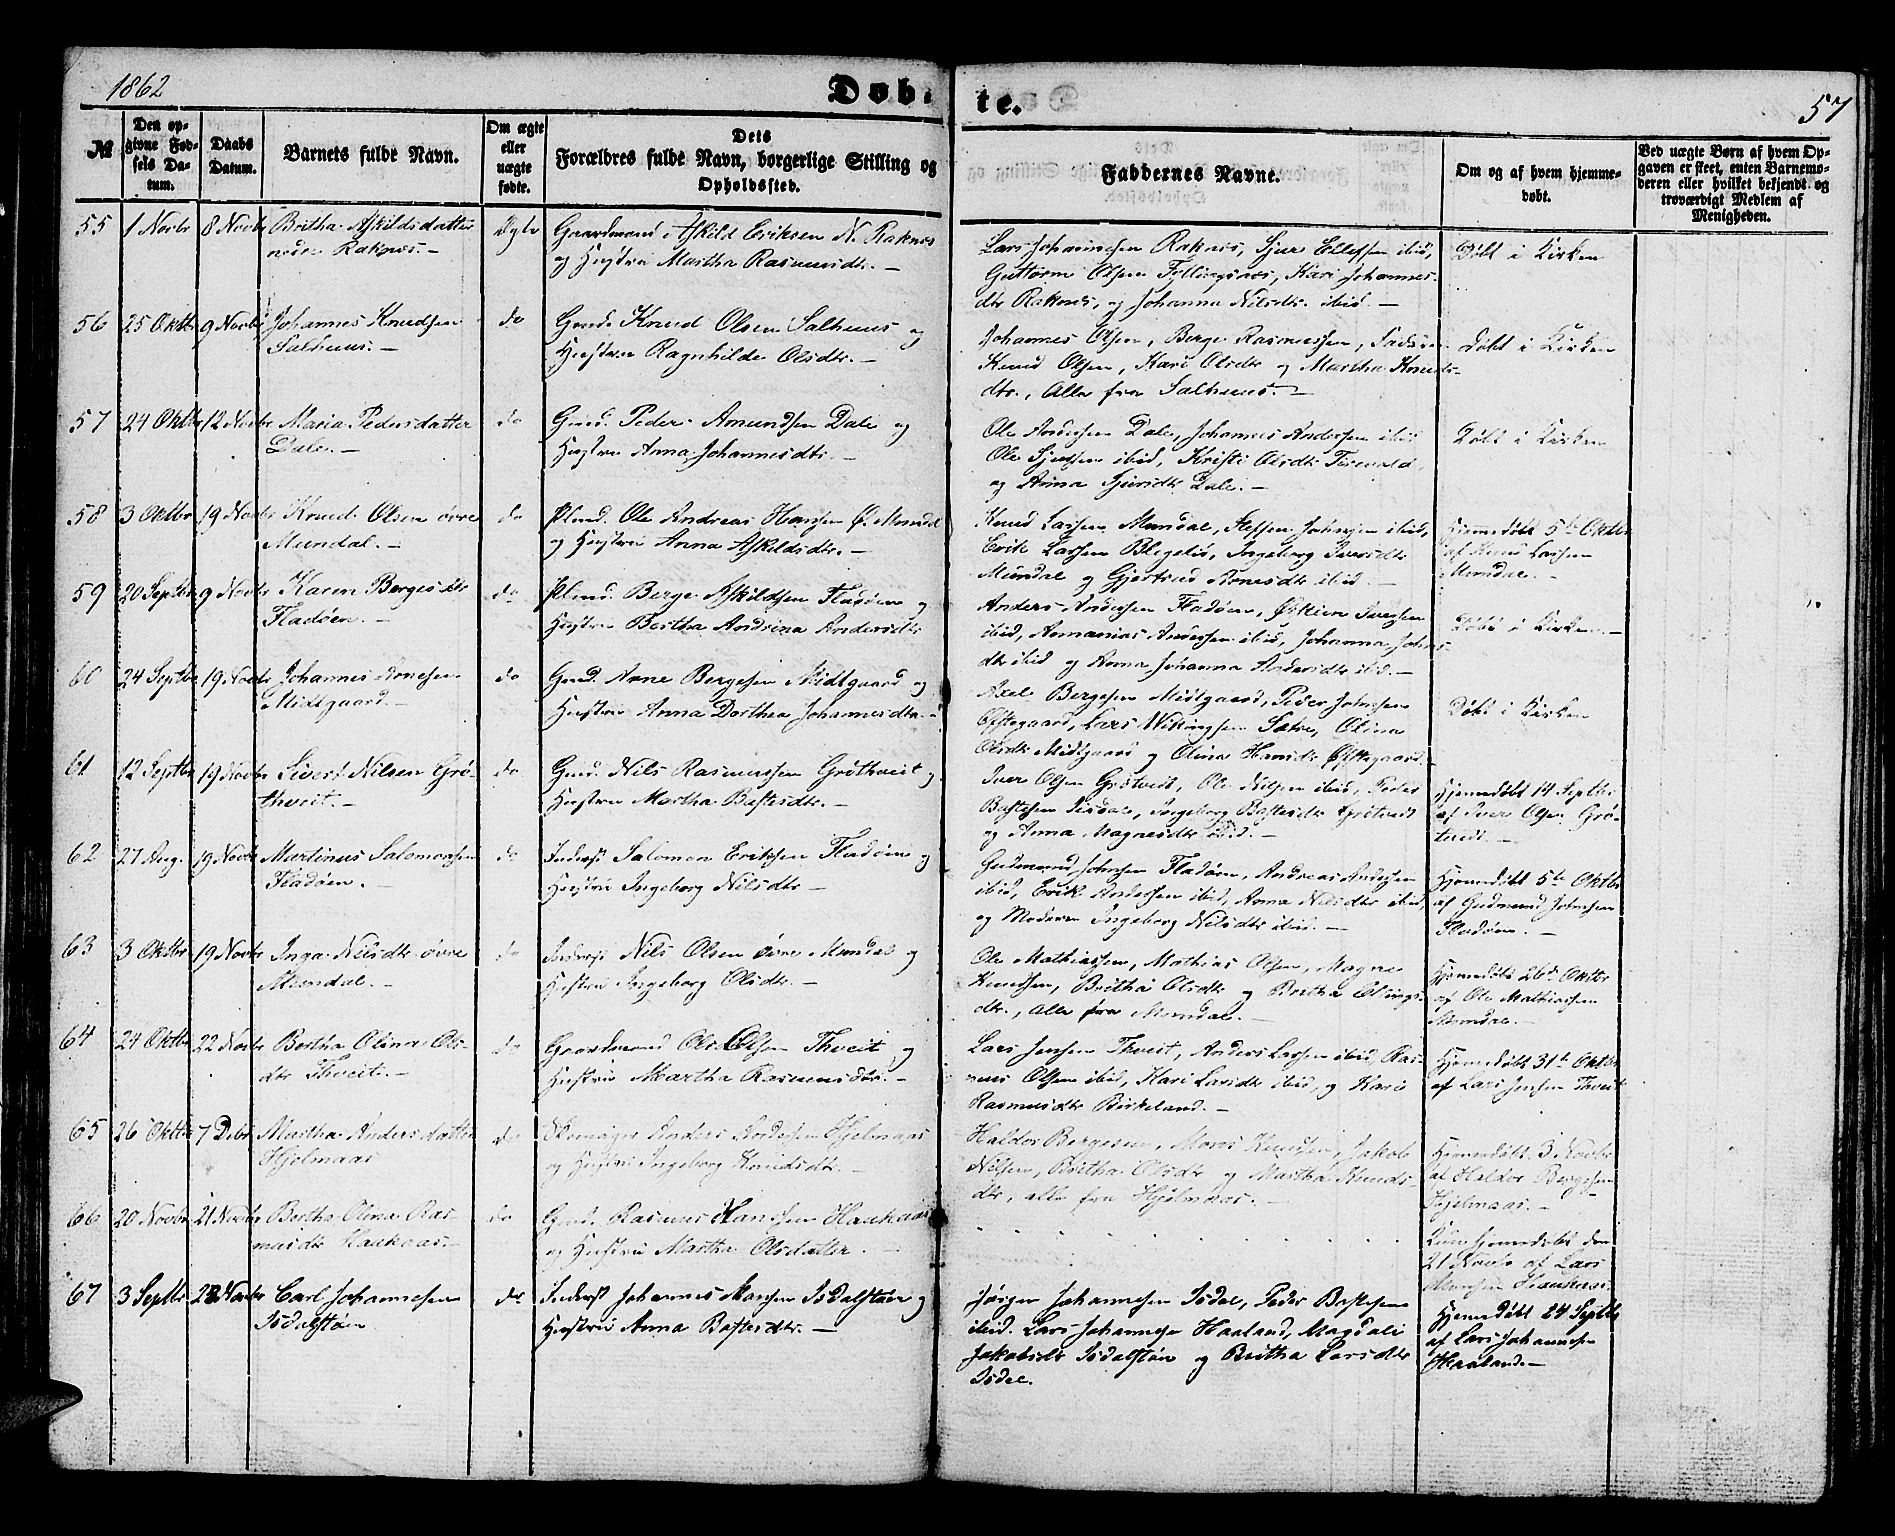 1862
Døbte.
57
№
Den opgivne Fødsels Datum.
Daabs Datum.
Barnets fulde Navn.
Om ægte eller uægte fødte.
Dets Forældres fulde Navn, borgerlige Stilling og Opholdssted.
Faddernes Navne.
Om og af hvem hjemmedøbt.
Ved uægte Børn af hvem Opgaven er skeet, enten Barnemoderen eller hvilket bekjendt og troværdigt Medlem af Menigheden.
55 1 Novbr 8 Novbr Britha Askildsdatter
nedre Raknes.-
Ægte
Gaardmand Askild Eriksen N. Raknes
og Hustru Martha Rasmusdtr.-
Lars Johannesen Raknes, Sjur Ellefsen ibid,
Guttorm Olsen Fyllingsnes, Kari Johannes-
dtr Raknes, og Johanna Nilsdtr ibid.-
Døbt i Kirken
56 25 Oktbr 9 Novbr Johannes Knudsen
Salhuus.-
do
Gmd. Knud Olsen Salhuus og
Hustru Ragnhilde Olsdtr.-
Johannes Olsen, Berge Rasmussen, Faderen
Knud Olsen, Kari Olsdtr og Martha Knuds-
dtr., Alle fra Salhuus.-
Døbt i Kirken
57 24 Oktbr 12 Novbr Maria Pedersdatter
Dale.-
do
Gmd. Peder Amundsen Dale og
Hustru Anna Johannesdtr.-
Ole Andersen Dale, Johannes Andersen ibid
Ole Sjursen ibid, Kristi Olsdtr
og Anna Sjursdtr Dale.-
Døbt i Kirken
58 3 Oktbr 19 Novbr Knud Olsen øvre
Mundal.-
do
Plmd. Ole Andreas Hansen Ø. Mundal
og Hustru Anna Askildsdtr.-
Knud Larsen Mundal, Steffen Johnsen ibid,
Erik Larsen, Ingeborg Iversdtr
Mundal og Gjertrud Arnesdtr ibid.-
Hjemmedøbt 5te Oktbr
af Knud Larsen
Mundal.-
59 20 Septbr 9 Novbr Karen Bergesdtr
Fladøen.-
do
Plmd. Berge Askildsen Fladøen og
Hustru Bertha Andrina Andersdtr
Anders Andersen Fladøen, Østein Iversen
ibid, Annanias Andersen ibid, Johanna Johns-
dtr ibid og Anna Johanna Andersdtr ibid.-
Døbt i Kirken.-
60 24 Septbr 19 Novbr Johannes Arnesen
Midtgaard.-
do
Gmd. Arne Bergesen Midtgaard og
Hustru Anna Dorthea Johannesdtr.-
Axel Bergesen Midtgaard, Peder Johnsen
Øftegaard, Lars Wikingsen Sætre, Olina
Olsdtr Midtgaard og Olina Hansdtr Øftegaard.
Døbt i Kirken
61 12 Septbr 19 Novbr Sivert Nilsen Grø-
thveit.-
do
Gmd. Nils Rasmussen Grøthveit og
Hustru Martha Bastesdtr.-
Iver Olsen Grøtveit, Ole Nilsen ibid, Peder
Bastesen Isdale, Ingeborg Bastesdtr Grøtvedt
og Anna Magnesdtr ibid.-
Hjemmedøbt 14 Septbr
af Iver Olsen Grø-
tvedt.-
62 27 Aug. 19 Novbr Martinus Salomonsen
Fladøen.
do
Inderst Salomon Eriksen Fladøen og
Hustru Ingeborg Nilsdtr-
Gudmund Johnsen Fladøen, Andreas Andersen
ibid, Erik Andersen ibid, Anna Nilsdtr ibid,
og Moderen Ingeborg Nilsdtr ibid.-
Hjemmedøbt 5te Oktbr
af Gudmund Johnsen
Fladøen.-
63 3 Oktbr 19 Novbr Inga Nilsdtr øvre
Mundal.-
do
Inderst Nils Olsen øvre Mundal og
Hustru Ingeborg Olsdtr.-
Ole Mathiassen, Mathias Olsen, Magne
Knudsen, Britha Olsdtr og Britha
dtr., Alle fra Mundal.-
Hjemmedøbt 26de Oktbr
af Ole Mathiassen
Mundal.-
64 24 Oktbr 22 Novbr Bertha Olina Ols-
dtr Thveit.-
do
Gaardmand Ole Olsen Thveit og
Hustru Martha Rasmusdtr.-
Lars Jensen Thveit, Anders Larsen ibid, Ras-
mus Olsen ibid, Kari Larsdtr ibid, og Kari
Rasmusdtr Birkeland.-
Hjemmedøbt 31te Oktbr
af Lars Jensen Thveit
65 26 Oktbr 7 Debr Martha Andersdatter
Hjelmaas
do
Skomager Anders Hjelmaas
og Hustru Ingeborg Knudsdtr.-
Haldor Bergesen, Mons Knudsen, Jakob
Nilsen, Britha Olsdtr og Martha Knuds-
dtr, alle fra Hjelmaas.-
Hjemmedøbt 3 Novbr
af Haldor Bergesen
Hjelmaas.-
66 20 Novbr 21 Novbr Bertha Olina Ras-
musdtr Haukaas.-
do
Gmd. Rasmus Hansen Haukaas
og Hustru Martha Olsdatter.-
Kun hjemmedøbt den
21 Novbr af Lars
Monsen Haukaas.
67 3 Septbr 23 Novbr Carl Johannesen
Isdalstøen
do
Inderst Johannes Monsen Isdalstøen og
Hustru Anna Bastesdtr.-
Jørgen Johannesen Isdal, Peder Bastesen
ibid. Lars Johannesen Haaland, Magdali
Jakobsdtr Isdalstøen og Britha Larsdtr
Isdal.
Hjemmedøbt 24 Septbr
af Lars Johannesen
Haaland.-